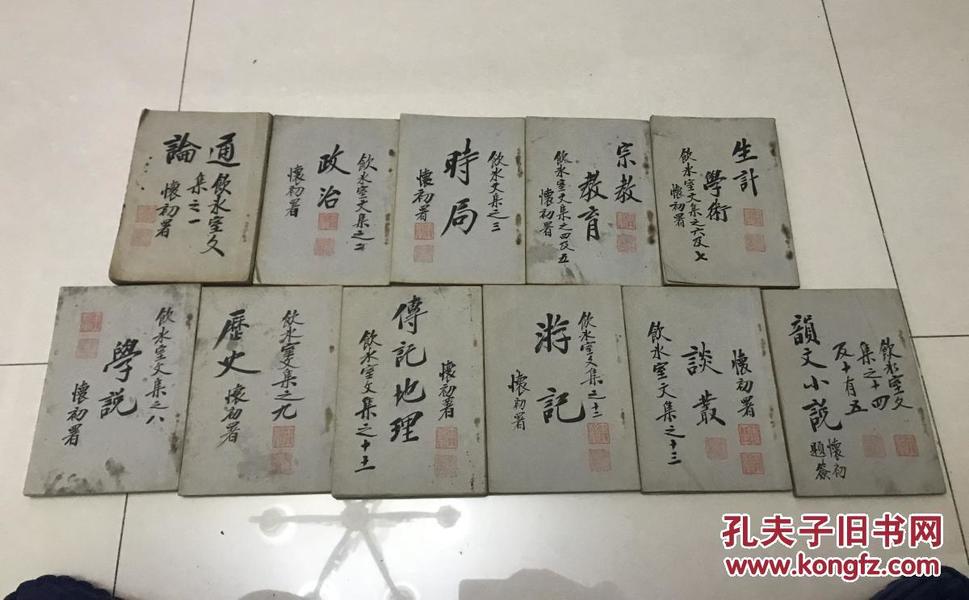 通論
飲冰室文
集之一
懷初署
政治
飲冰室文集之二
懷初署
時局
飲冰文集之三
懷初署
宗教
教育
飲冰室文集之四及五
懷初署
生計
學術
飲冰室文集之六及七
懷初署
飲冰室文集之八
學說
懷初署
飲冰室文集之九
歷史
懷初署
傳記地理
飲冰室文集之十一
懷初署
飲冰室文集之十二
游記
懷初署
懷初署
談叢
飲冰室文集之十三
飲冰室文
集之十四
及十有五
韻文小說
懷初
題簽
孔夫子旧书网
www.kongfz.com